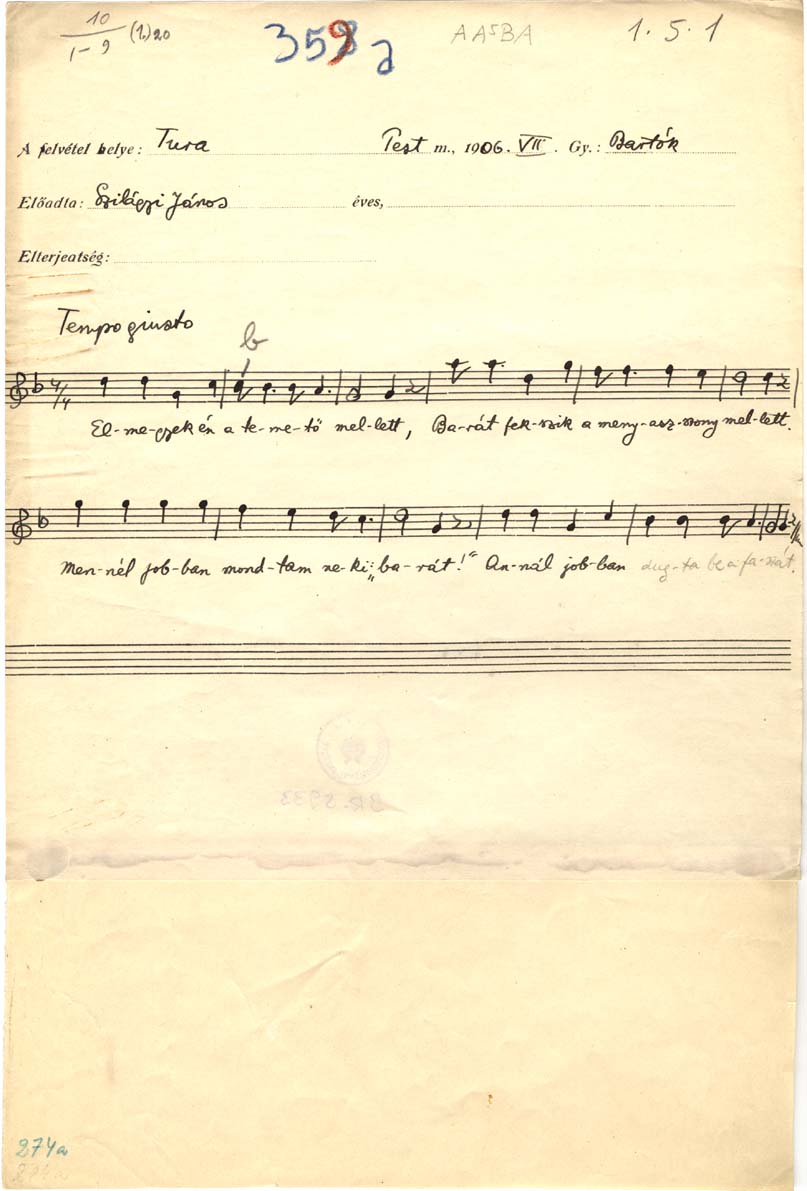 10
1-9 (1.) 20
359 a
AA⁵BA
1. 5. 1
A felvétel helye: Tura Pest m., 1906. VII. Gy.: Bartók
Előadta: Szilágyi János éves,
Elterjeatség:
Tempo giusto
b
4/4
El-me-gyek én a te-me-tő mel-lett, Ba-rát fek-szik a meny-asz-szony mel-lett.
Men-nél job-ban mond-tam ne-ki: „ba-rát!" An-nál job-ban dug-ta be a fa-szát.
BR. 5933
274a
274a